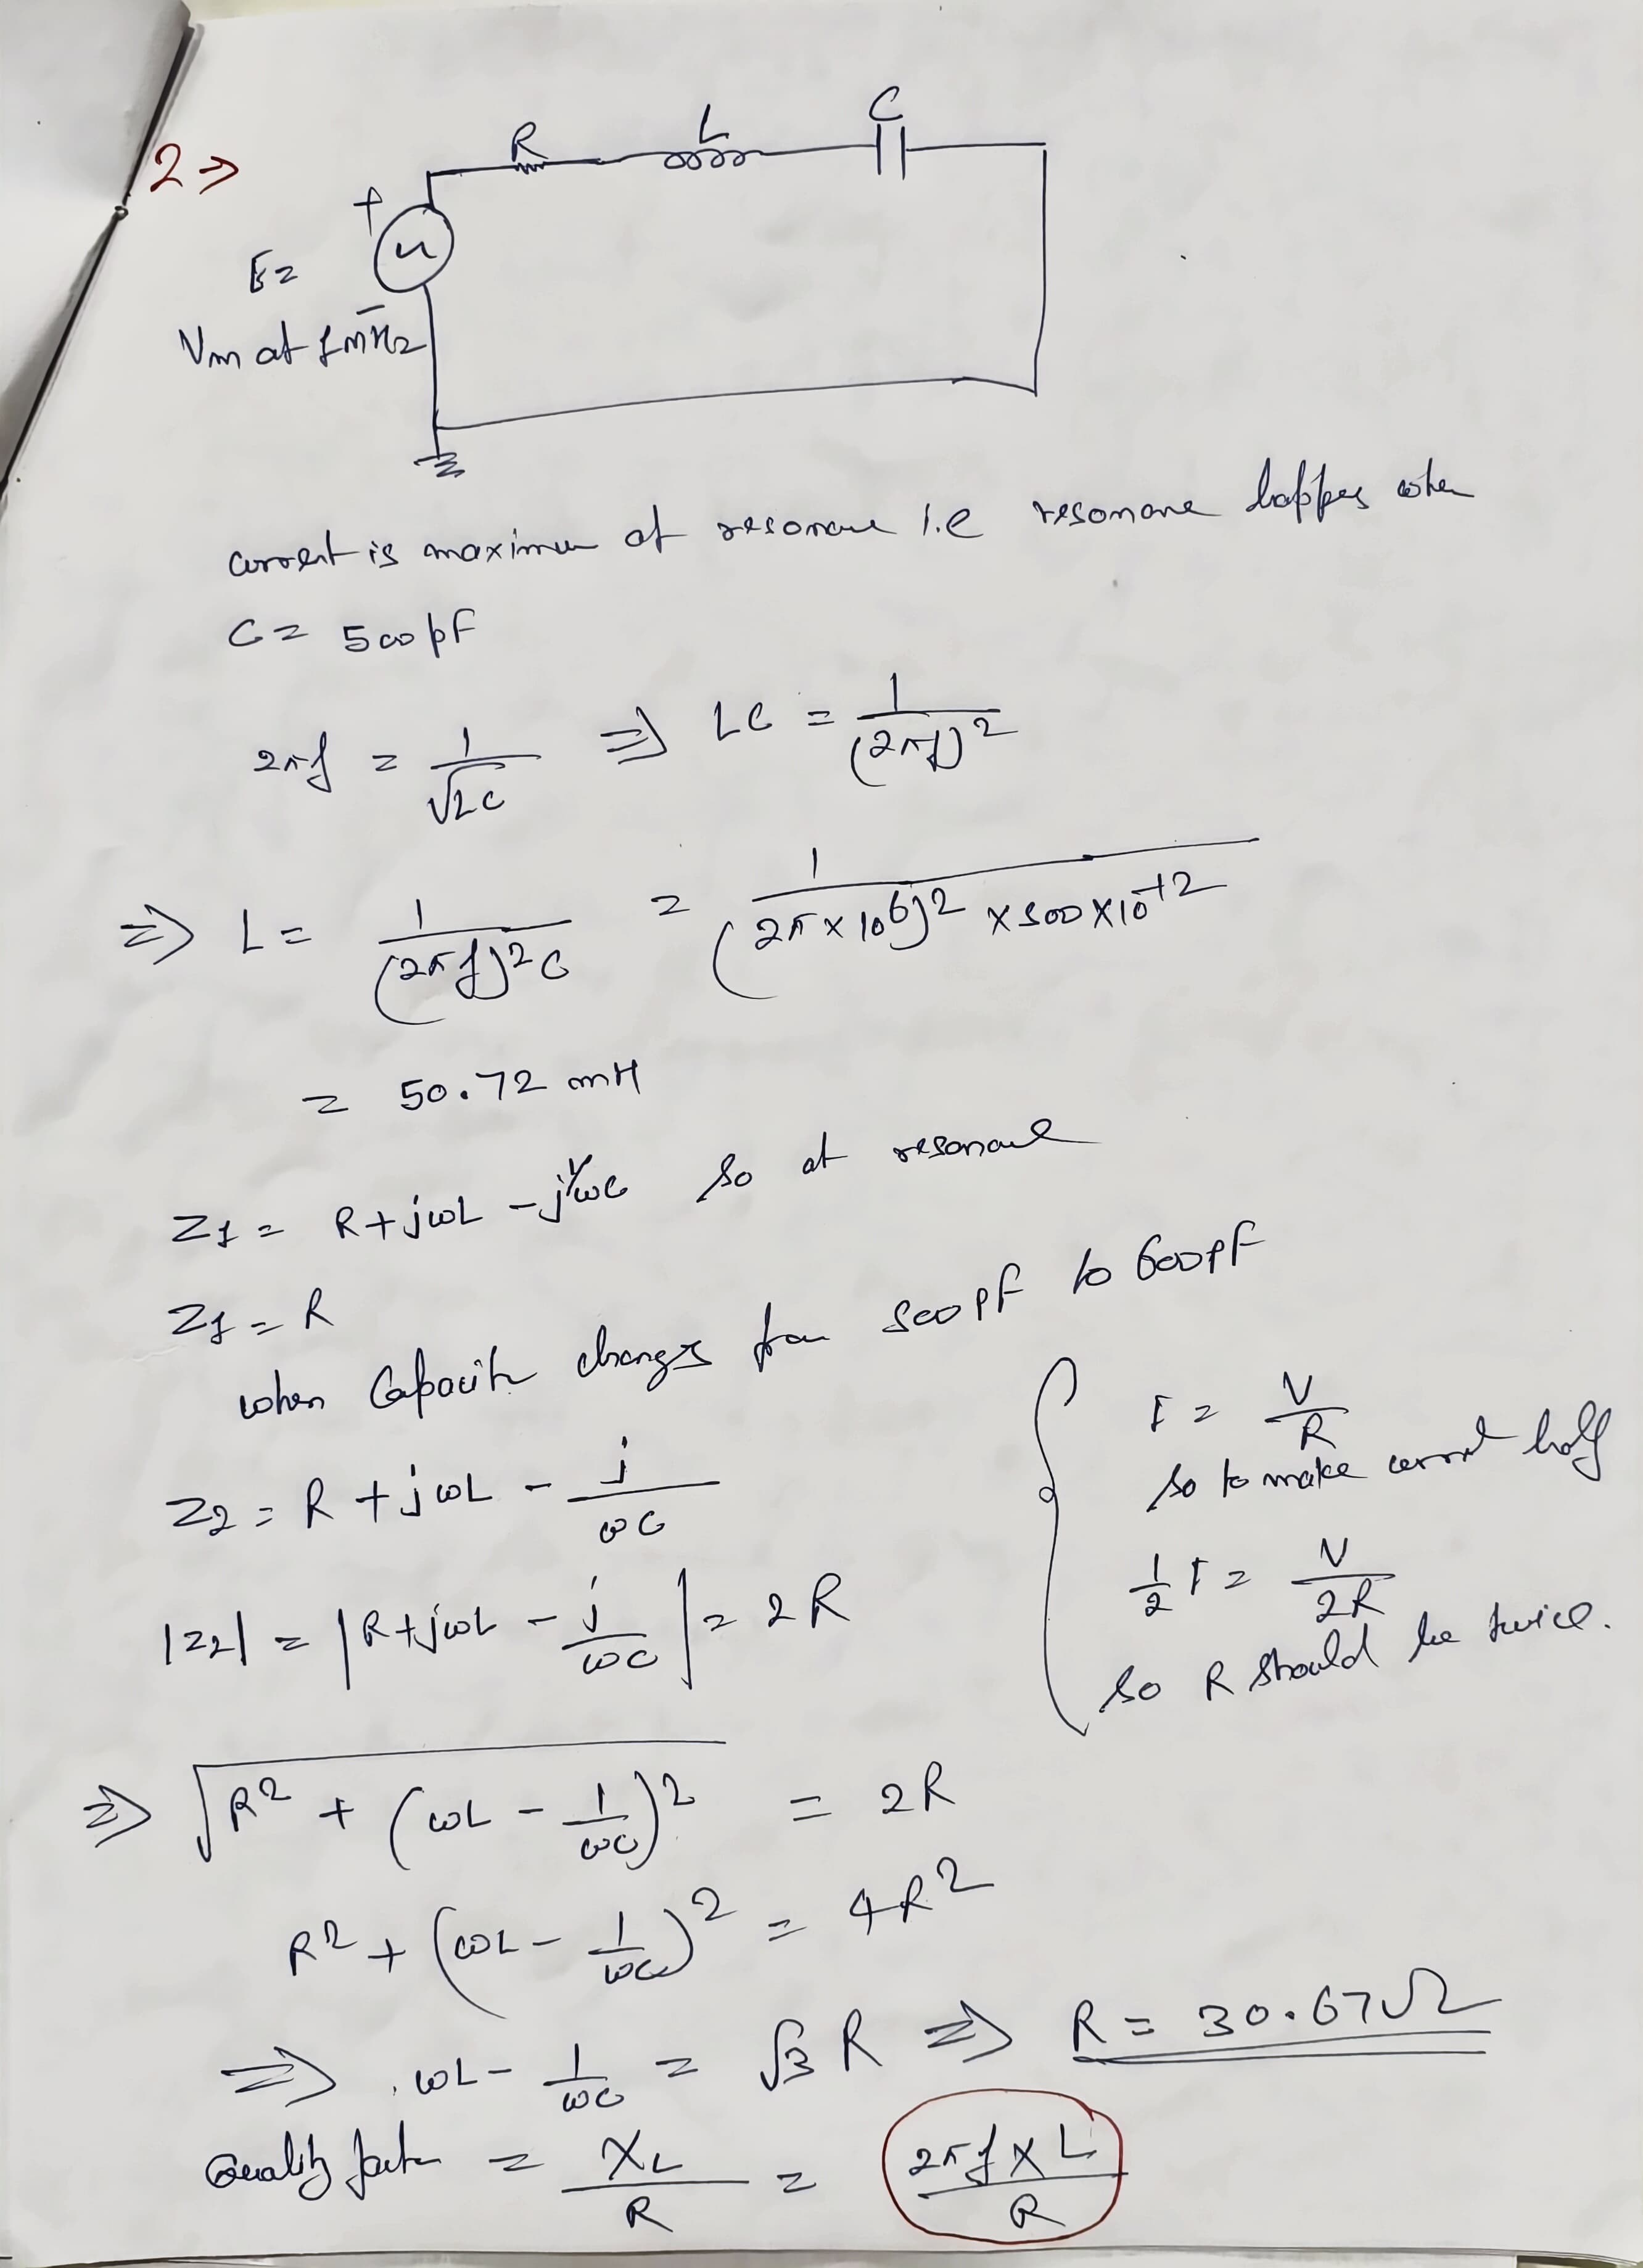 2 ⇒
R L C
+
E =
Vm at 1 MHz
-
current is maximum at resonance i.e resonance happes when
C = 500 pF
2πf = 1/√LC ⇒ LC = 1/(2πf)²
⇒ L = 1/(2πf)²C = 1/(2π×10⁶)² × 500×10⁻¹²
= 50.72 mH
Z1 = R + jωL - j1/ωC so at resonance
Z1 = R
when Capacite changes from 500 pF to 600 pF
Z2 = R + jωL - j/ωC
|Z2| = |R + jωL - j/ωC| = 2R
I = V/R
so to make current half
1/2 I = V/2R
so R should be twice.
⇒ √R² + (ωL - 1/ωC)² = 2R
R² + (ωL - 1/ωC)² = 4R²
⇒ ωL - 1/ωC = √3 R ⇒ R = 30.67Ω
Quality factor = XL/R = 2πf × L/R